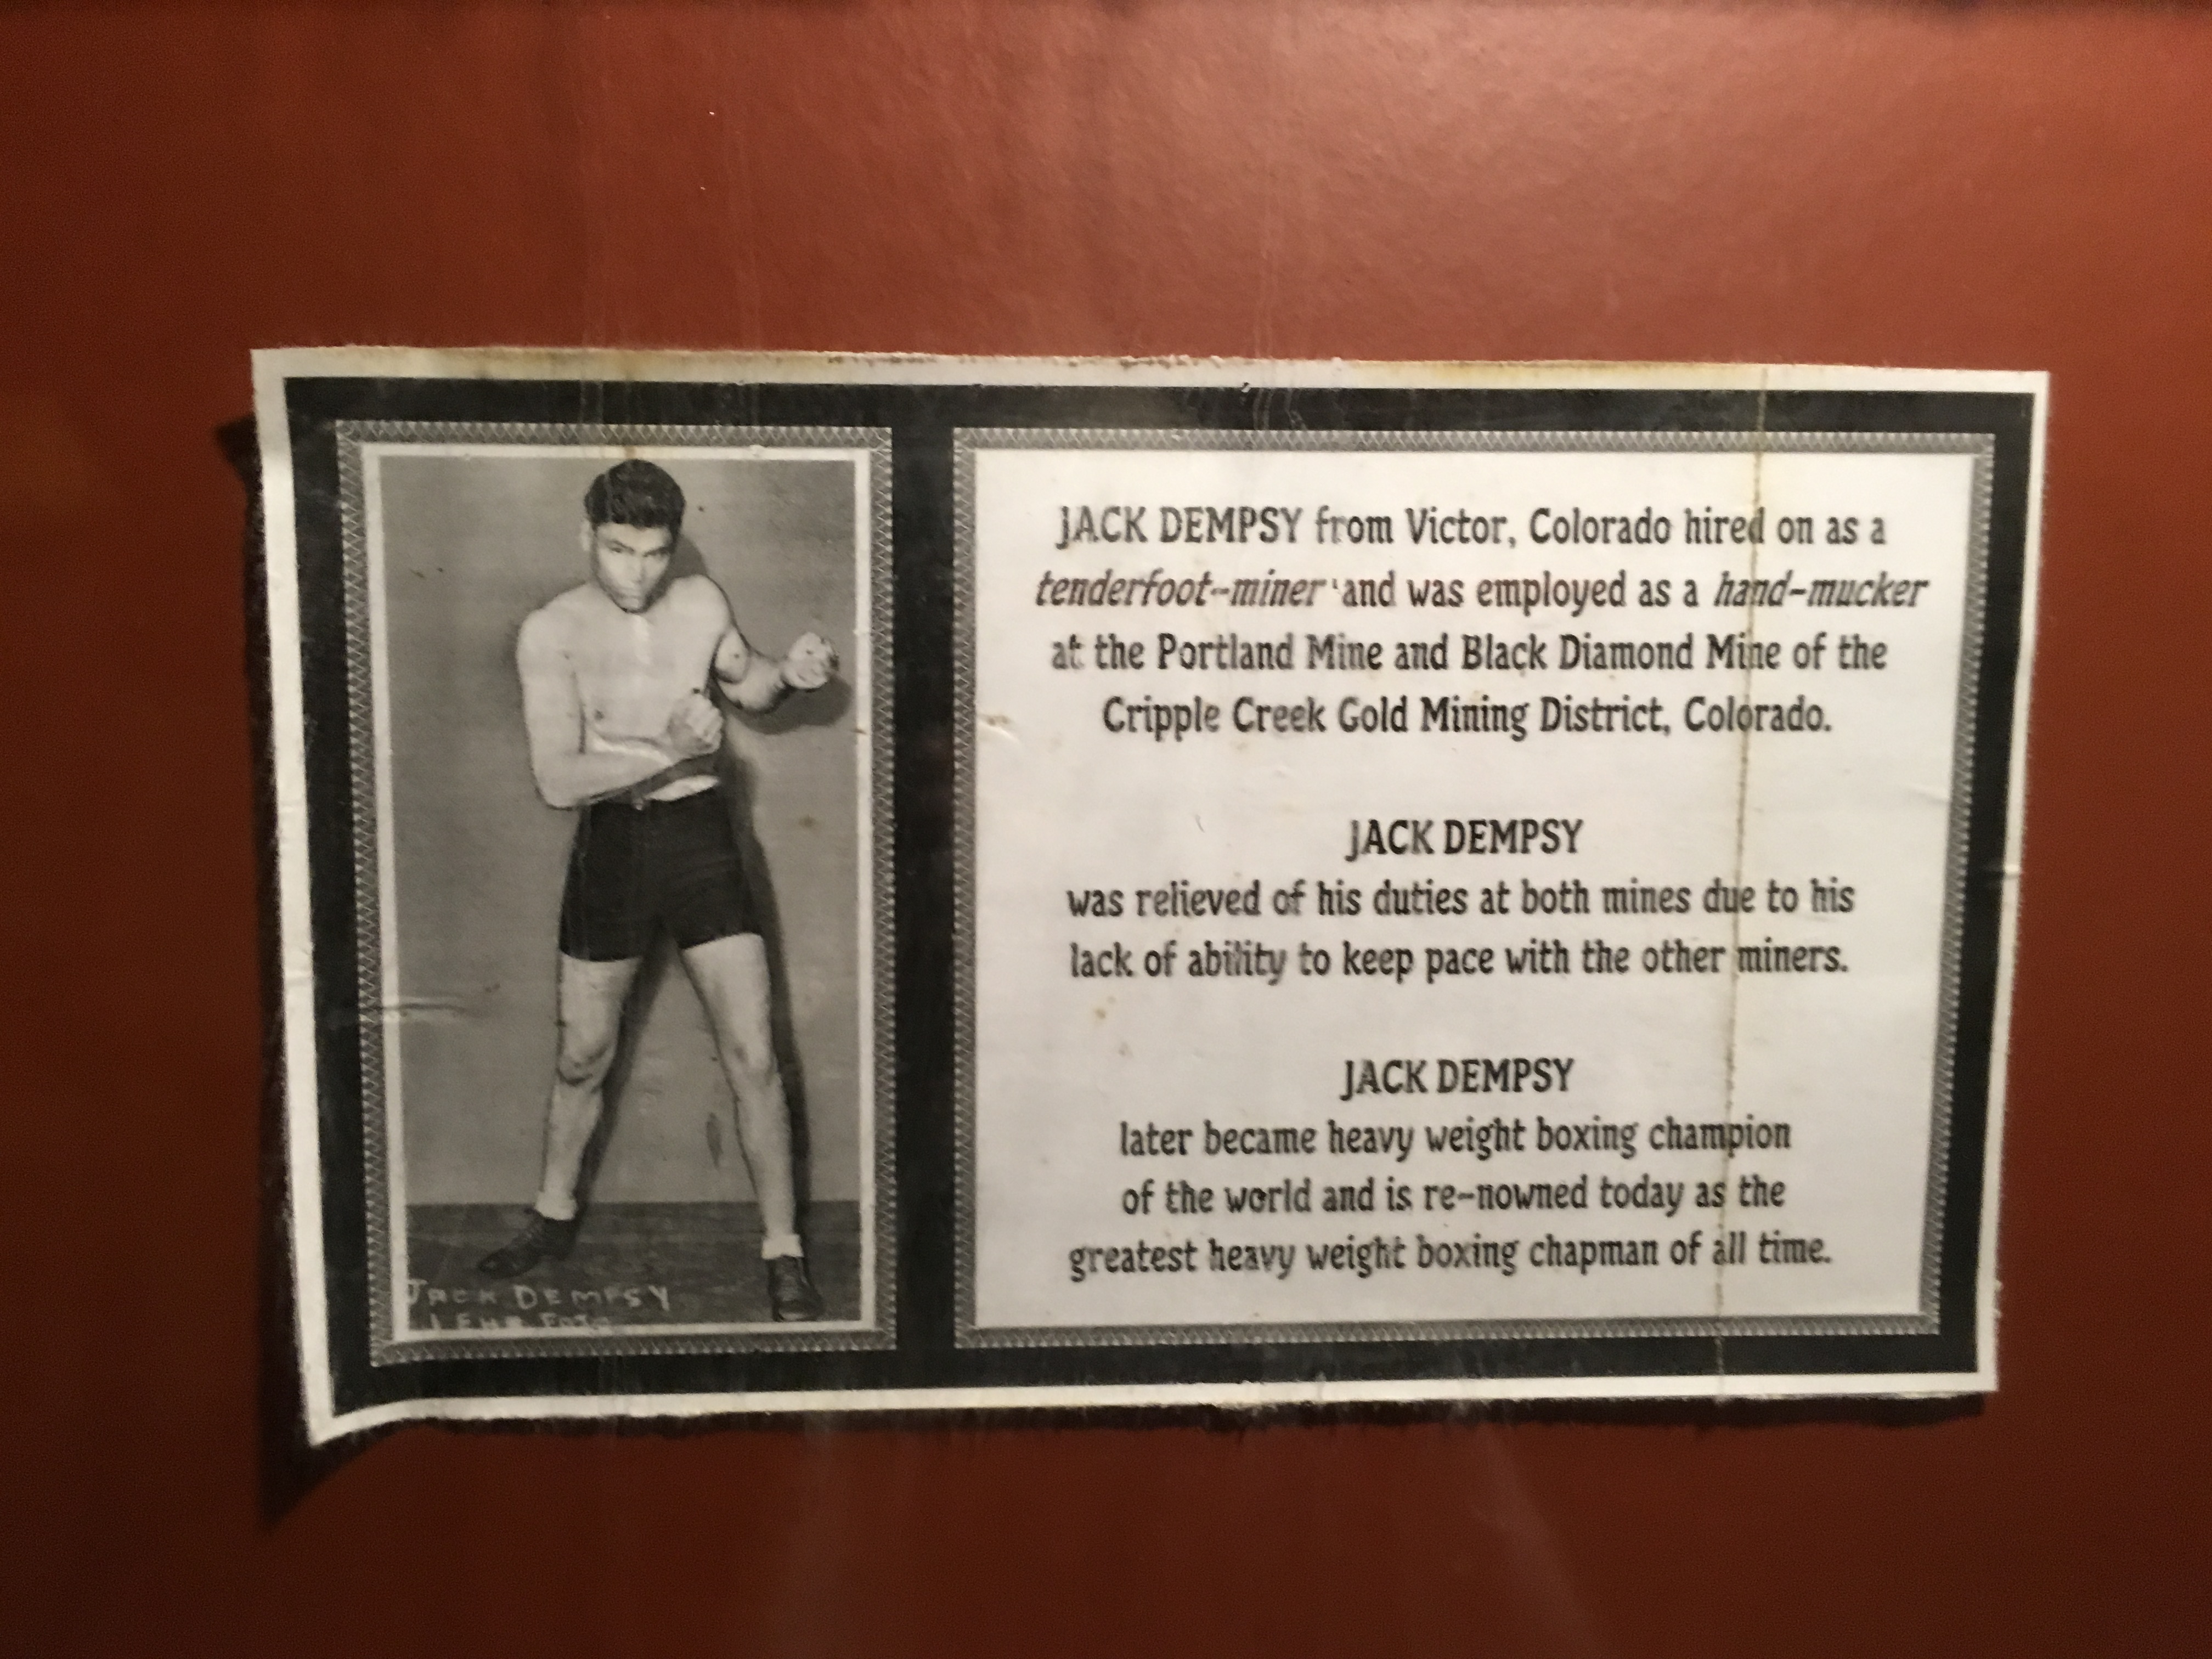 JACK DEMPSY from Victor, Colorado hired on as a
tenderfoot-miner and was employed as a hand-mucker
at the Portland Mine and Black Diamond Mine of the
Cripple Creek Gold Mining District, Colorado.
JACK DEMPSY
was relieved of his duties at both mines due to his
lack of ability to keep pace with the other miners.
JACK DEMPSY
later became heavy weight boxing champion
of the world and is re-nowned today as the
greatest heavy weight boxing chapman of all time.
JACK DEMPSY